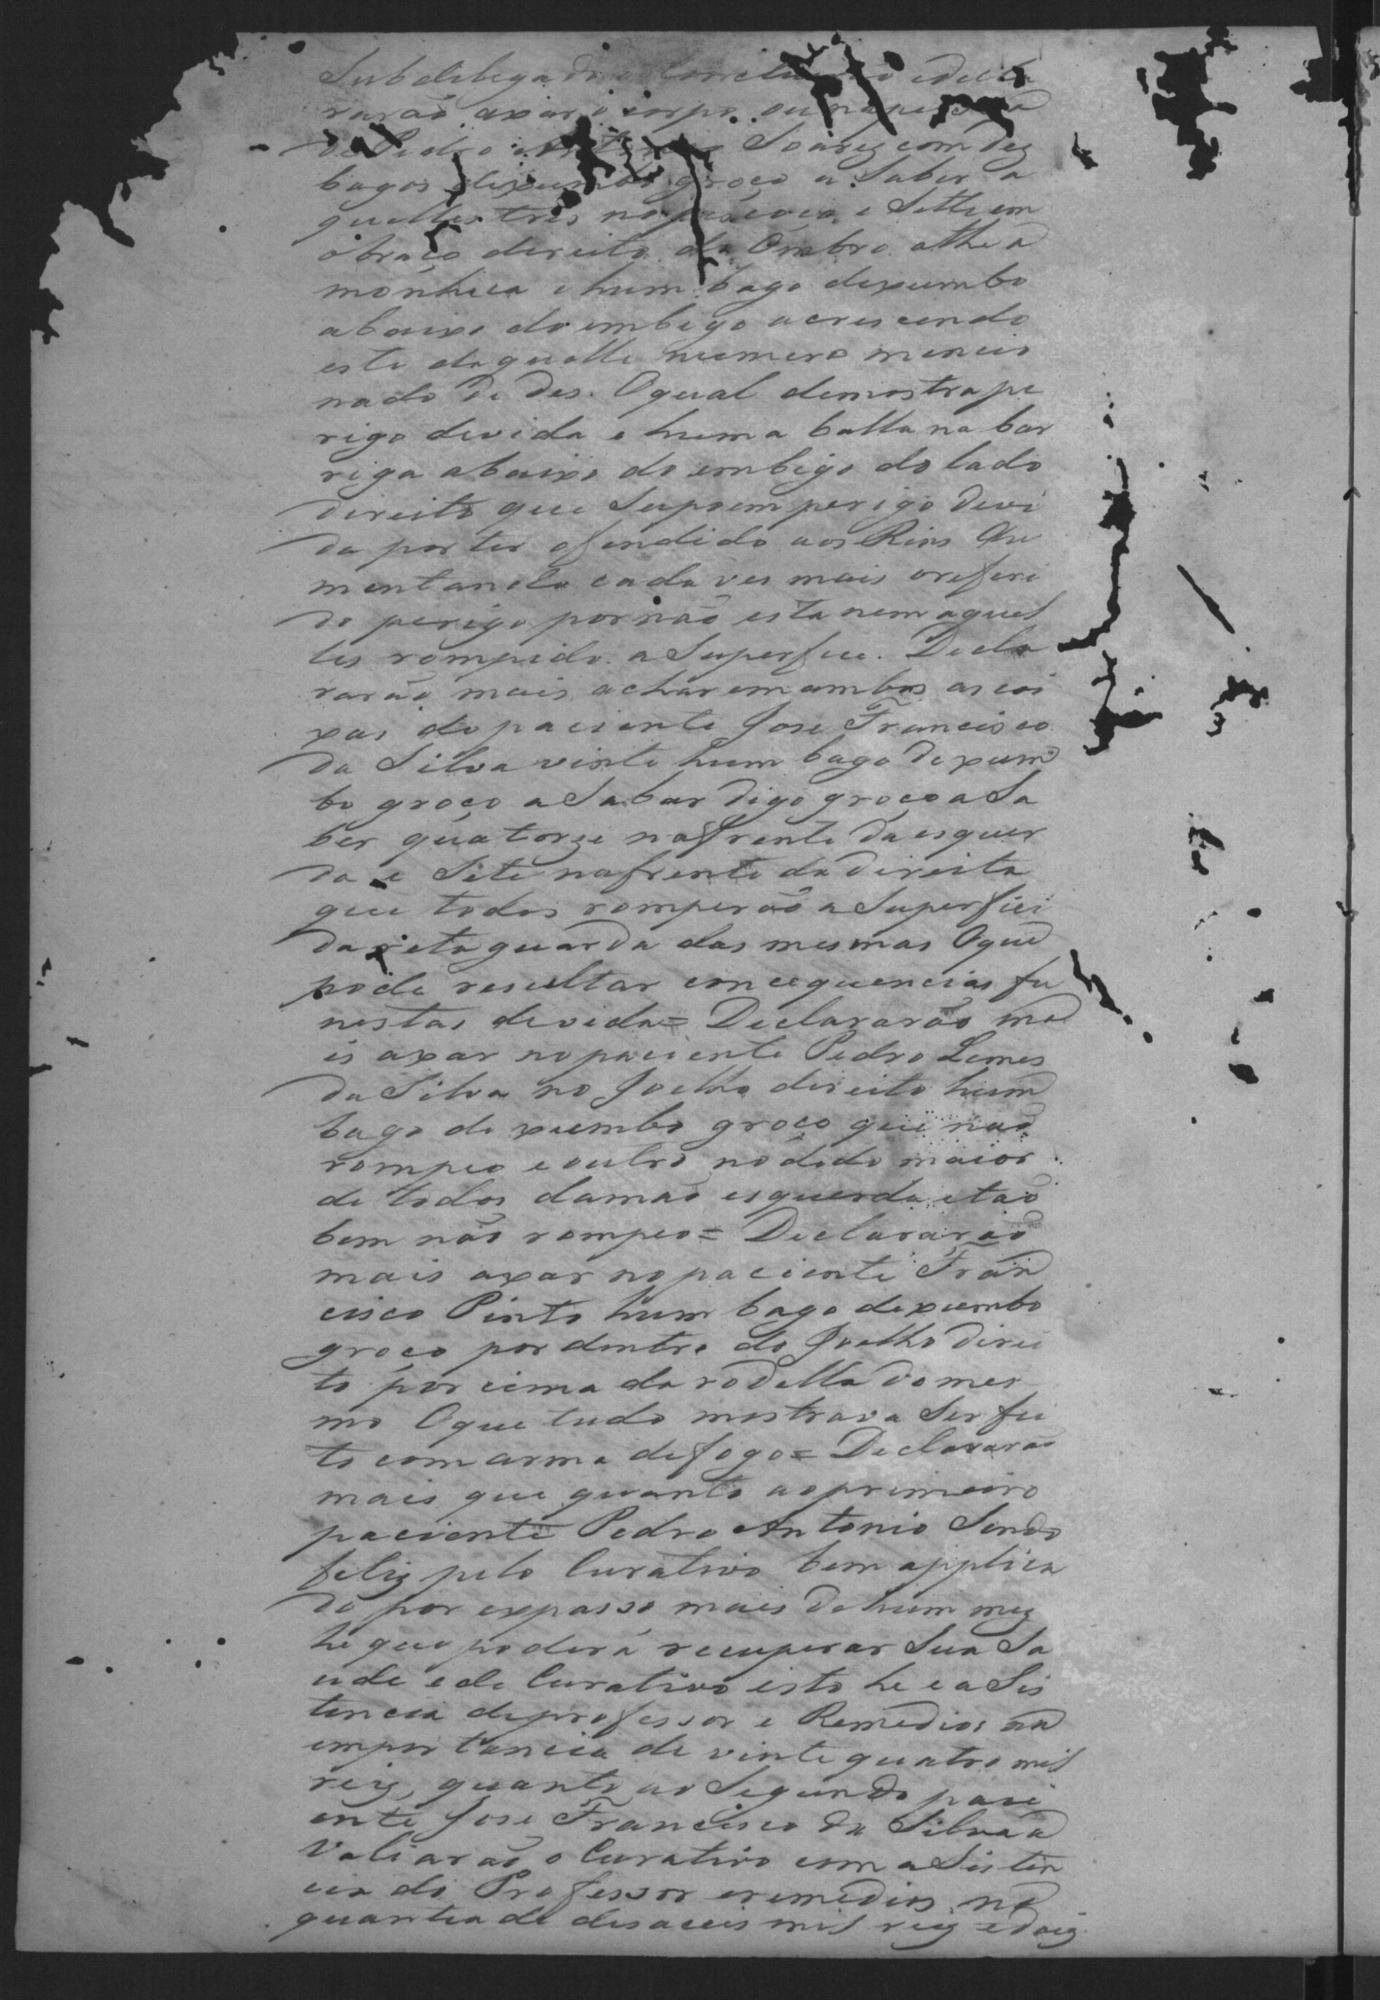 Subdelegado e decla
rarão axar o corpo ou na pessoa
de Pedro Antonio Soares com dez
bagos dexumbo groço a Saber a
quelles tres no e Sette em
o braço dereito do Ombro athe a
monheca e hum bago dexumbo
abaixo do embigo acrescendo
este daquelle numero mencio
nado de des. Oqual demostra pe
rigo devida e huma balla na bar
riga abaixo do embigo do lado
direito que Supoem perigo devi
da por ter ofendido aos Rins Au
mentando cada ves mais oreferi
do perigo pornão esta nem aquel
les rompido a Superfice. Decla
rarão mais acharem ambas as coi
xas do paciente Jose Francisco
da Silva vinte hum bago de xum
bo groço a Sabar digo groço a Sa
ber quatorze nafrente da esquer
da e Sete nafrente da direita
que todos romperão a Superfici
da retaguarda das mesmas Oque
pode resultar concequencias fu
nestas devida = Declararão ma
is axar no paciente Pedro Lemes
da Silva no Joelho direito hum
bago de xumbo groço que não
rompeo e outro no dedo maior
de todos damão esquerda e tão
bem não rompeo = Declararão
mais axar no paciente Fran
cisco Pinto hum bago dexumbo
groço por dentro do Joelho direi
to por cima da rodella do mes
mo Oque tudo mostrava Ser fei
to com arma defogo = Declararão
mais que quanto ao primeiro
paciente Pedro Antonio Sendo
feliz pelo Curativo bem applica
do por expasso mais de hum mez
he que poderá recuperar Sua Sa
ude e de Curativo isto he e a Sis
tencia de professor e Remedios na
importancia de vinte quatro mil
reiz, quanto ao Segundo paci
ente Jose Francisco da Silva a
Valiarão o Curativo com a Sisten
cia do Professor eremedios na
quantia de desaceis mil reiz e dois